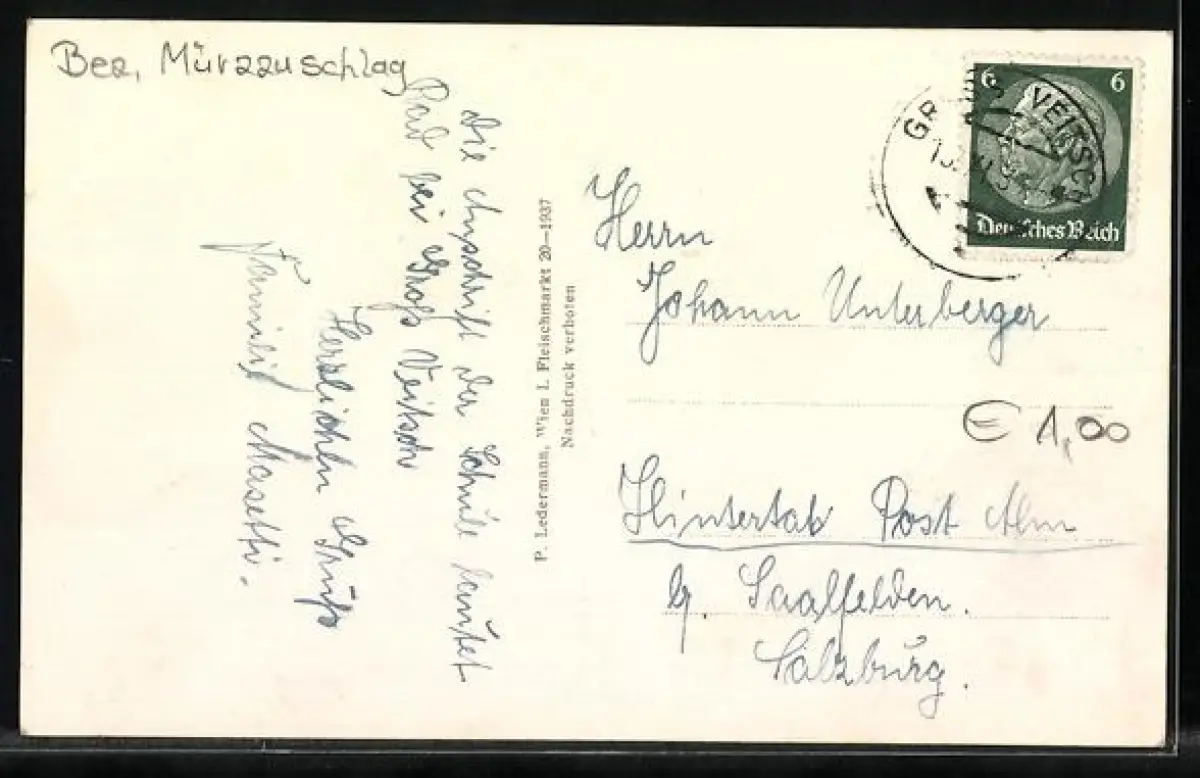 Bez. Mürzzuschlag
Die Anschrift der Schule lautet
Rad bei Groß Veitsch
Herzlichen Gruß
Familie Masetti.
P. Ledermann, Wien I. Fleischmarkt 20—1937
Nachdruck verboten
6 6
Deutsches Reich
VEITSCH
Herrn
Johann Unterberger
€ 1,00
Hintertal Post Alm
b. Saalfelden.
Salzburg.